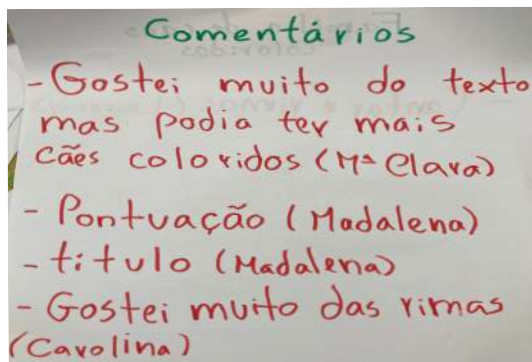 Comentários
- Gostei muito do texto
mas podia ter mais
cães coloridos (Mª Clara)
- Pontuação (Madalena)
- título (Madalena)
- Gostei muito das rimas
(Carolina)